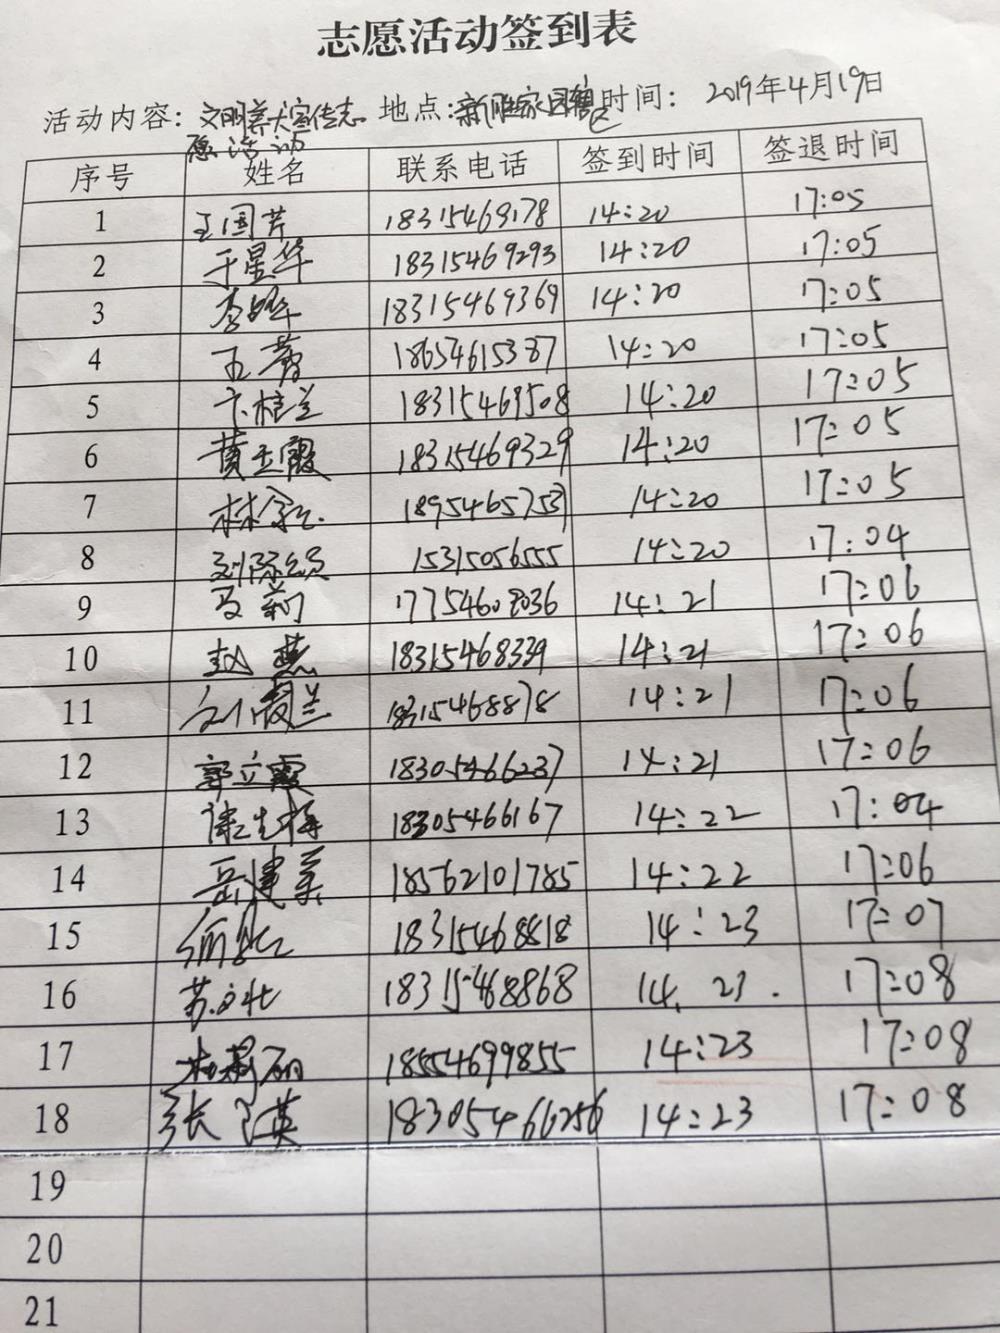 志愿活动签到表
活动内容：文明养犬宣传志 地点：新胜家园 时间：2019年4月19日
愿活动
序号 姓名 联系电话 签到时间 签退时间
1 王国芹 18315469178 14:20 17:05
2 于星华 18315469293 14:20 17:05
3 李 18315469369 14:20 17:05
4 18654615387 14:20 17:05
5 卞桂兰 18315469508 14:20 17:05
6 黄玉霞 18315469329 14:20 17:05
7 林 14:20 17:05
8 刘 15315056555 14:20 17:04
9 马莉 14:21 17:06
10 赵燕 18315468339 14:21 17:06
11 18315468878 14:21 17:06
12 郭立霞 18305466237 14:21 17:06
13 18305466167 14:22 17:04
14 岳建美 18562101785 14:22 17:06
15 18315468818 14:23 17:07
16 苏 18315468868 14.23. 17:08
17 杜莉丽 18554699855 14:23 17:08
18 张 英 18305466256 14:23 17:08
19
20
21